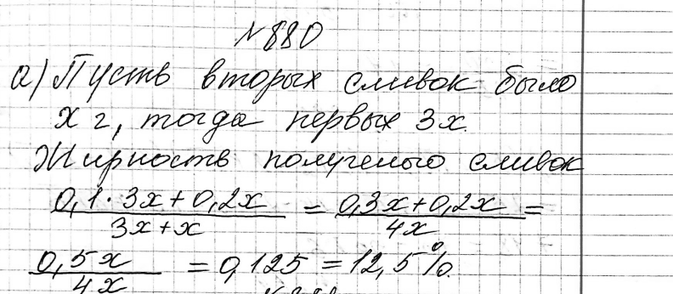 №880
а) Пусть вторых сливок было
x г, тогда первых 3x.
Жирность полученого сливок
0,1·3x+0,2x / 3x+x = 0,3x+0,2x / 4x =
0,5x / 4x = 0,125 = 12,5%.